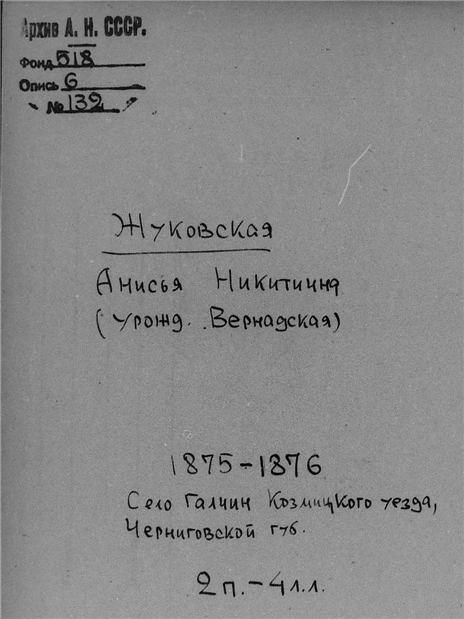 Архив А. Н. СССР.
Фонд 518
Опись 6
№ 132
Жуковская
Анисья Никитична
(урожд. Вернадская)
1875-1876
Село Галчин Козлицкого уезда,
Черниговской губ.
2 п. - 4 л.л.